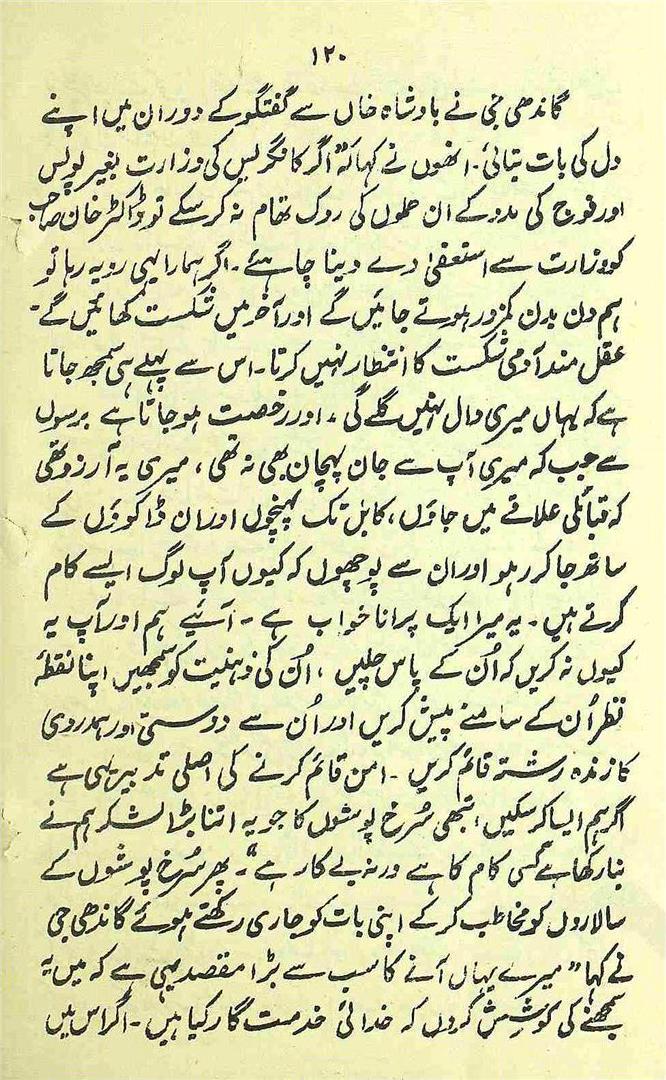 ۱۲۰
گاندھی جی نے بادشاہ خاں سے گفتگو کے دوران میں اپنے
دل کی بات بتائی۔ انھوں نے کہا کہ "اگر کانگریس کی وزارت بغیر پولیس
اور فوج کی مدد کے ان حملوں کی روک تھام نہ کر سکے تو ڈاکٹر خان صاحب
کو وزارت سے استعفیٰ دے دینا چاہئے۔ اگر ہمارا یہی رویہ رہا تو
ہم دن بدن کمزور ہوتے جائیں گے اور آخر میں شکست کھائیں گے۔
عقل مند آدمی شکست کا انتظار نہیں کرتا۔ اس سے پہلے ہی سمجھ جاتا
ہے کہ یہاں میری دال نہیں گلے گی، اور رخصت ہو جاتا ہے برسوں
سے جب کہ میری آپ سے جان پہچان بھی نہ تھی، میری یہ آرزو تھی
کہ قبائلی علاقے میں جاؤں، کابل تک پہنچوں اور ان ڈاکوؤں کے
ساتھ جا کر رہو اور ان سے پوچھوں کہ کیوں آپ لوگ ایسے کام
کرتے ہیں۔ یہ میرا ایک پرانا خواب ہے۔ آئیے ہم اور آپ یہ
کیوں نہ کریں کہ اُن کے پاس چلیں، اُن کی ذہنیت کو سمجھیں اپنا نقطۂ
نظر اُن کے سامنے پیش کریں اور اُن سے دوستی اور ہمدردی
کا زندہ رشتہ قائم کریں۔ امن قائم کرنے کی اصلی تدبیر یہی ہے
اگر ہم ایسا کر سکیں تبھی سُرخ پوشوں کا جو یہ اتنا بڑا لشکر ہم نے
بنا رکھا ہے کسی کام کا ہے ورنہ بے کار ہے"۔ پھر سُرخ پوشوں کے
سالاروں کو مخاطب کر کے اپنی بات کو جاری رکھتے ہوئے گاندھی جی
نے کہا "میرے یہاں آنے کا سب سے بڑا مقصد یہی ہے کہ میں یہ
سمجھنے کی کوشش کروں کہ خدائی خدمت گار کیا ہیں۔ اگر اس میں